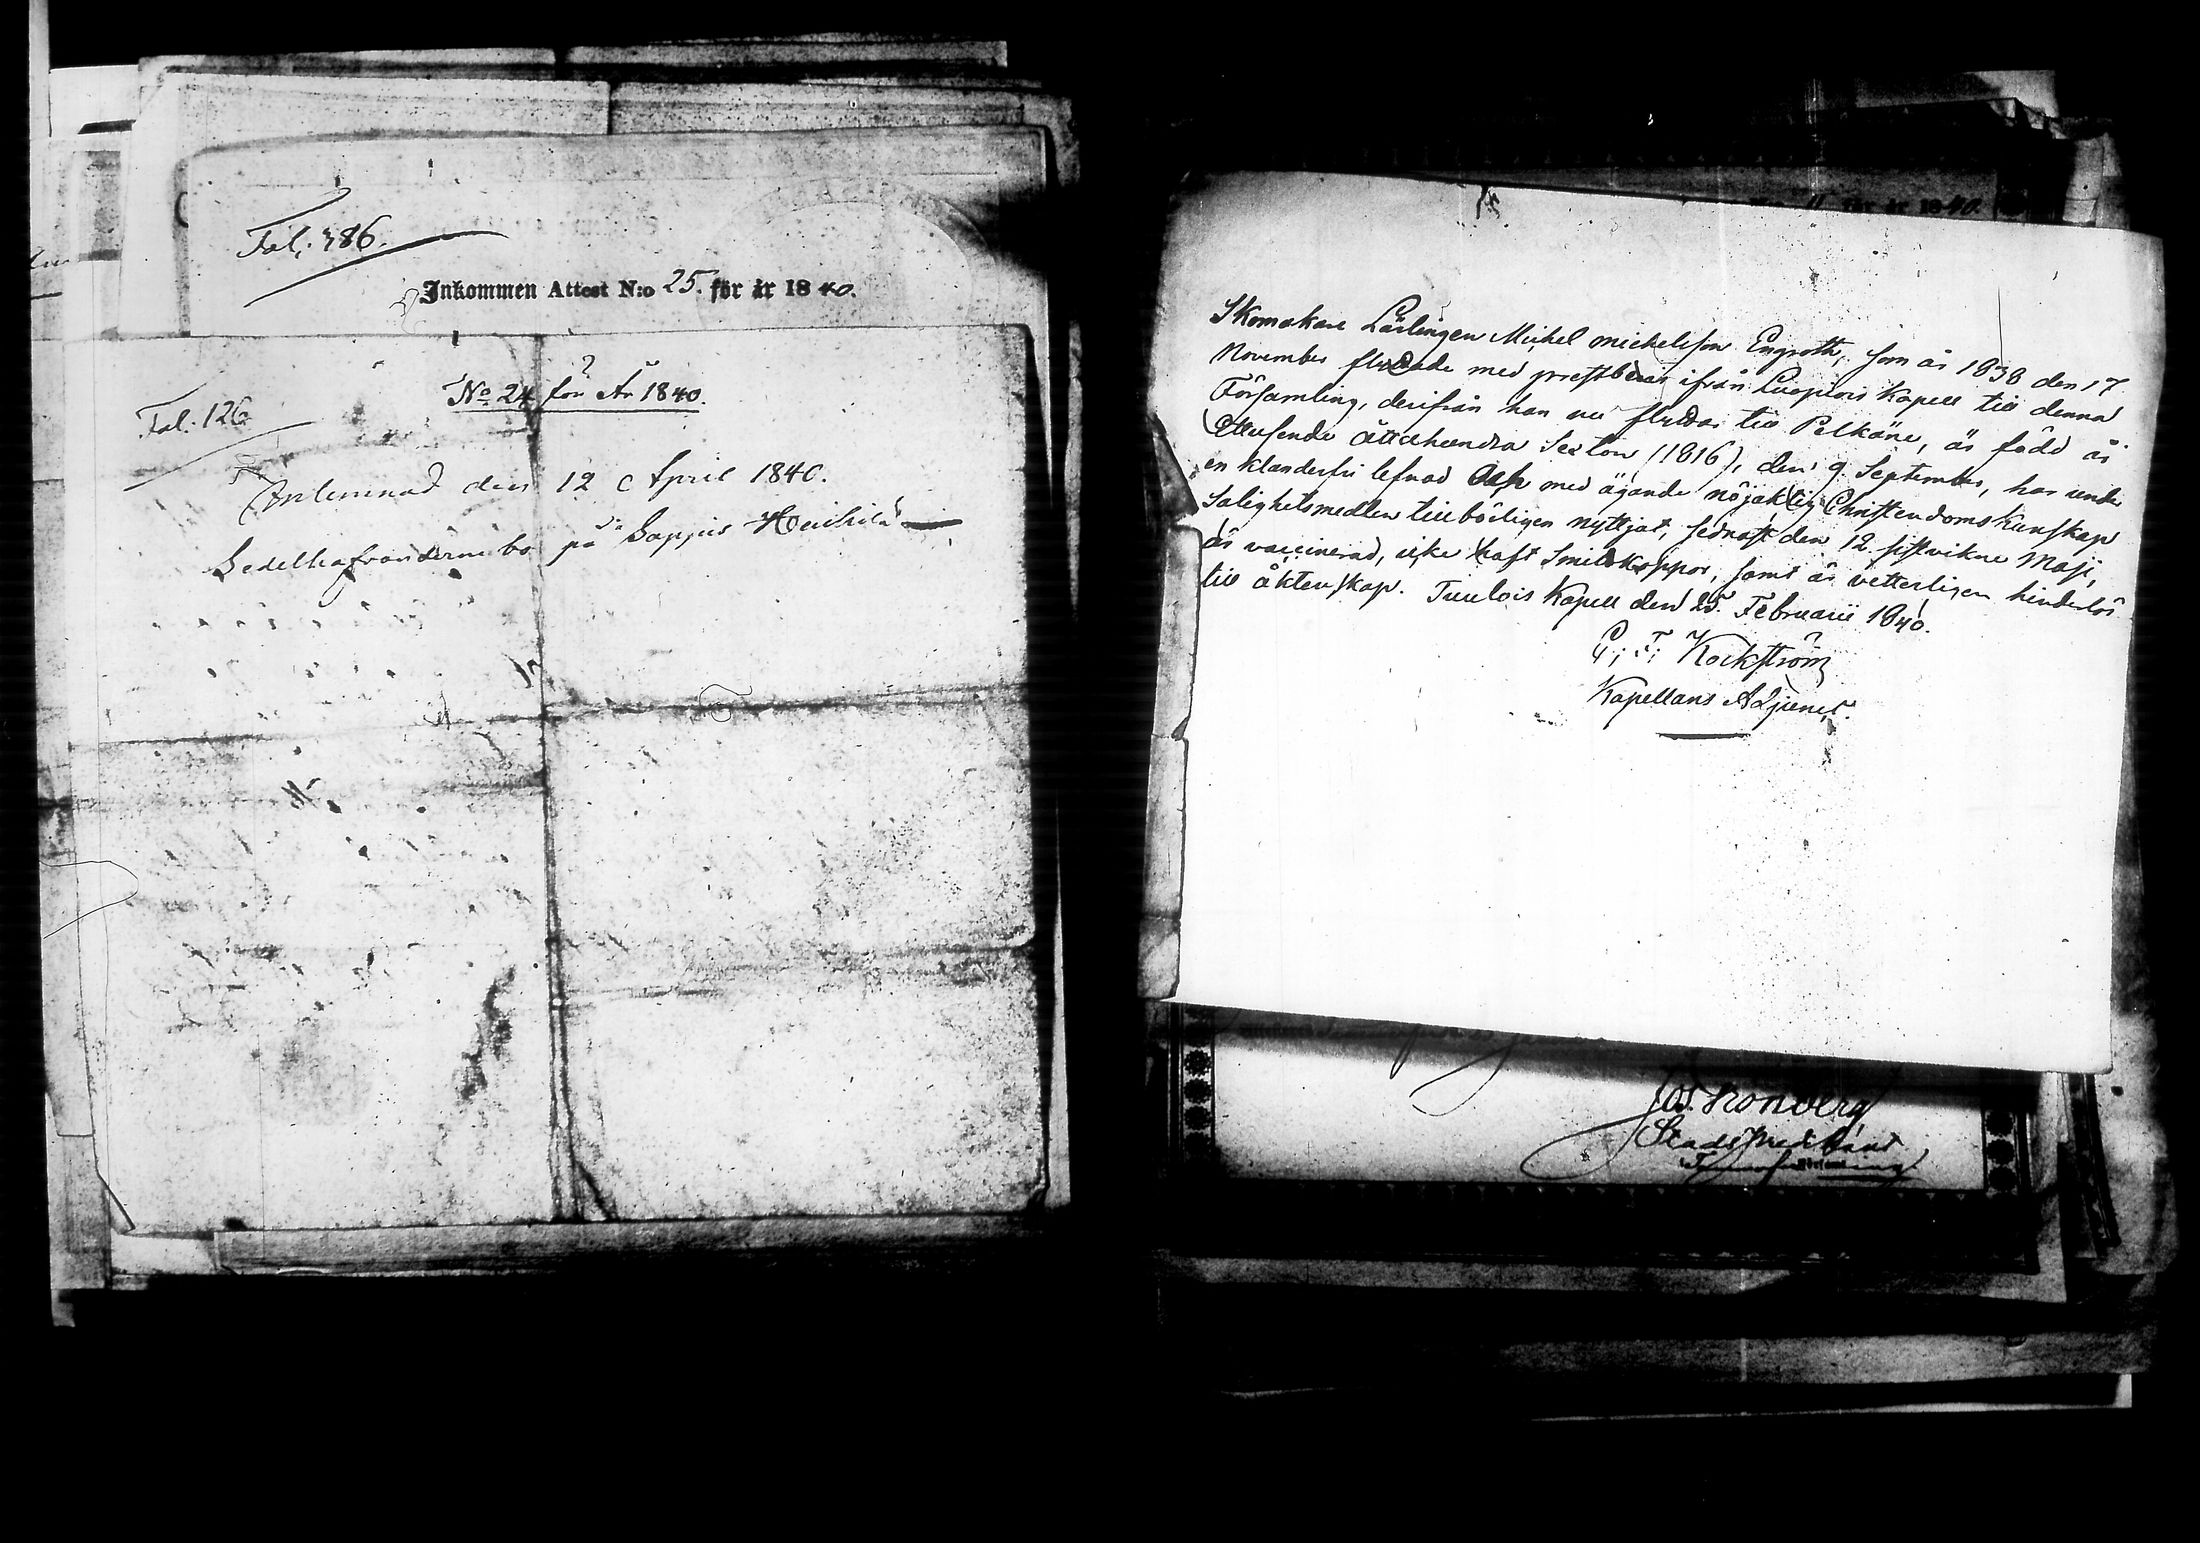 Fol. 386.
Inkommen Attest N:o 25. för år 1840.
No. 24 för År 1840.
Fol. 126
Inlemnad den 12 April 1840.
Sedelhafvanderne bo på Sappis Heikkilä
för år 1840.
Skomakare Lärlingen Michel Michelsson Engroth, som år 1838 den 17
November flyttade med prestbevis ifrån Luopiois Kapell till denna
Församling, derifrån han nu flyttar till Pelkäne, är född år
Ettusende åttahundra Sexton (1816), den 9 September, har under
en klanderfri lefnad och med ägande nöjaktig Christendoms Kunskap
Salighetsmedlen tillbörligen nyttjat, sednast den 12 sistvikne Maji,
är vaccinerad, icke haft Smittkoppor, samt är vetterligen hinderlös
till äktenskap. Tuulois Kapell den 25 Februarii 1840.
G. F. Kockström
Kapellans Adjunct.
Kronberg